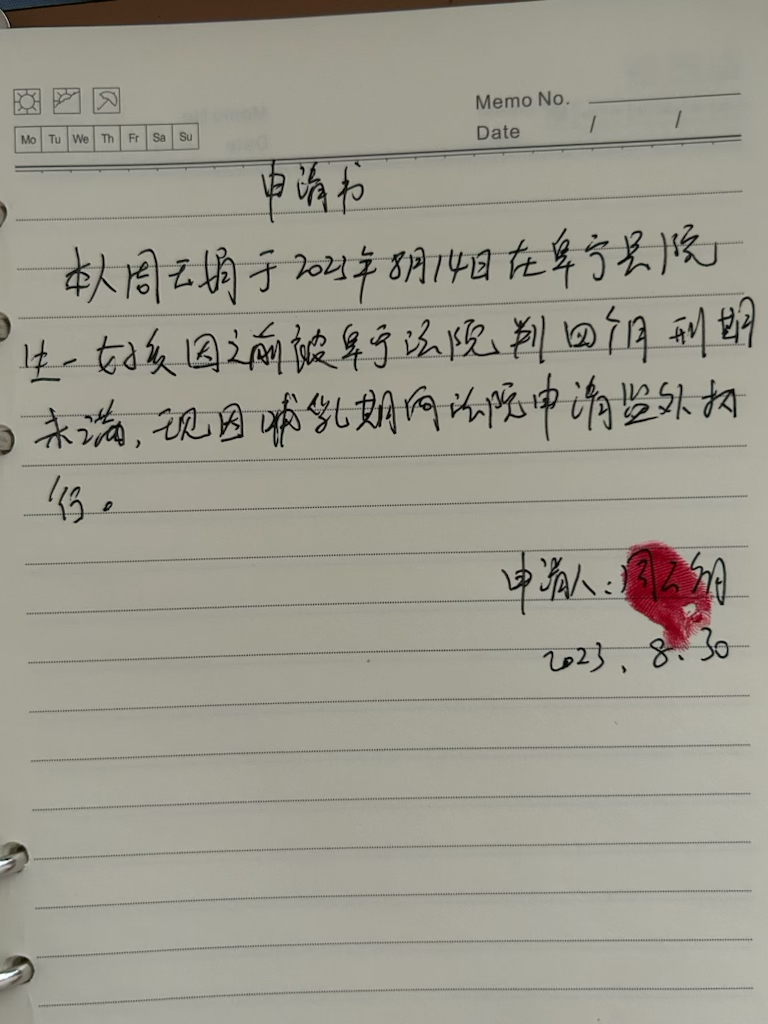 Memo No.
Mo Tu We Th Fr Sa Su
Date / /
申请书
本人周云娟于2023年8月14日在阜宁县医院
生一女孩因之前被阜宁法院判四个月刑期
未满,现因哺乳期向法院申请监外执
行。
申请人:周云娟
2023.8.30